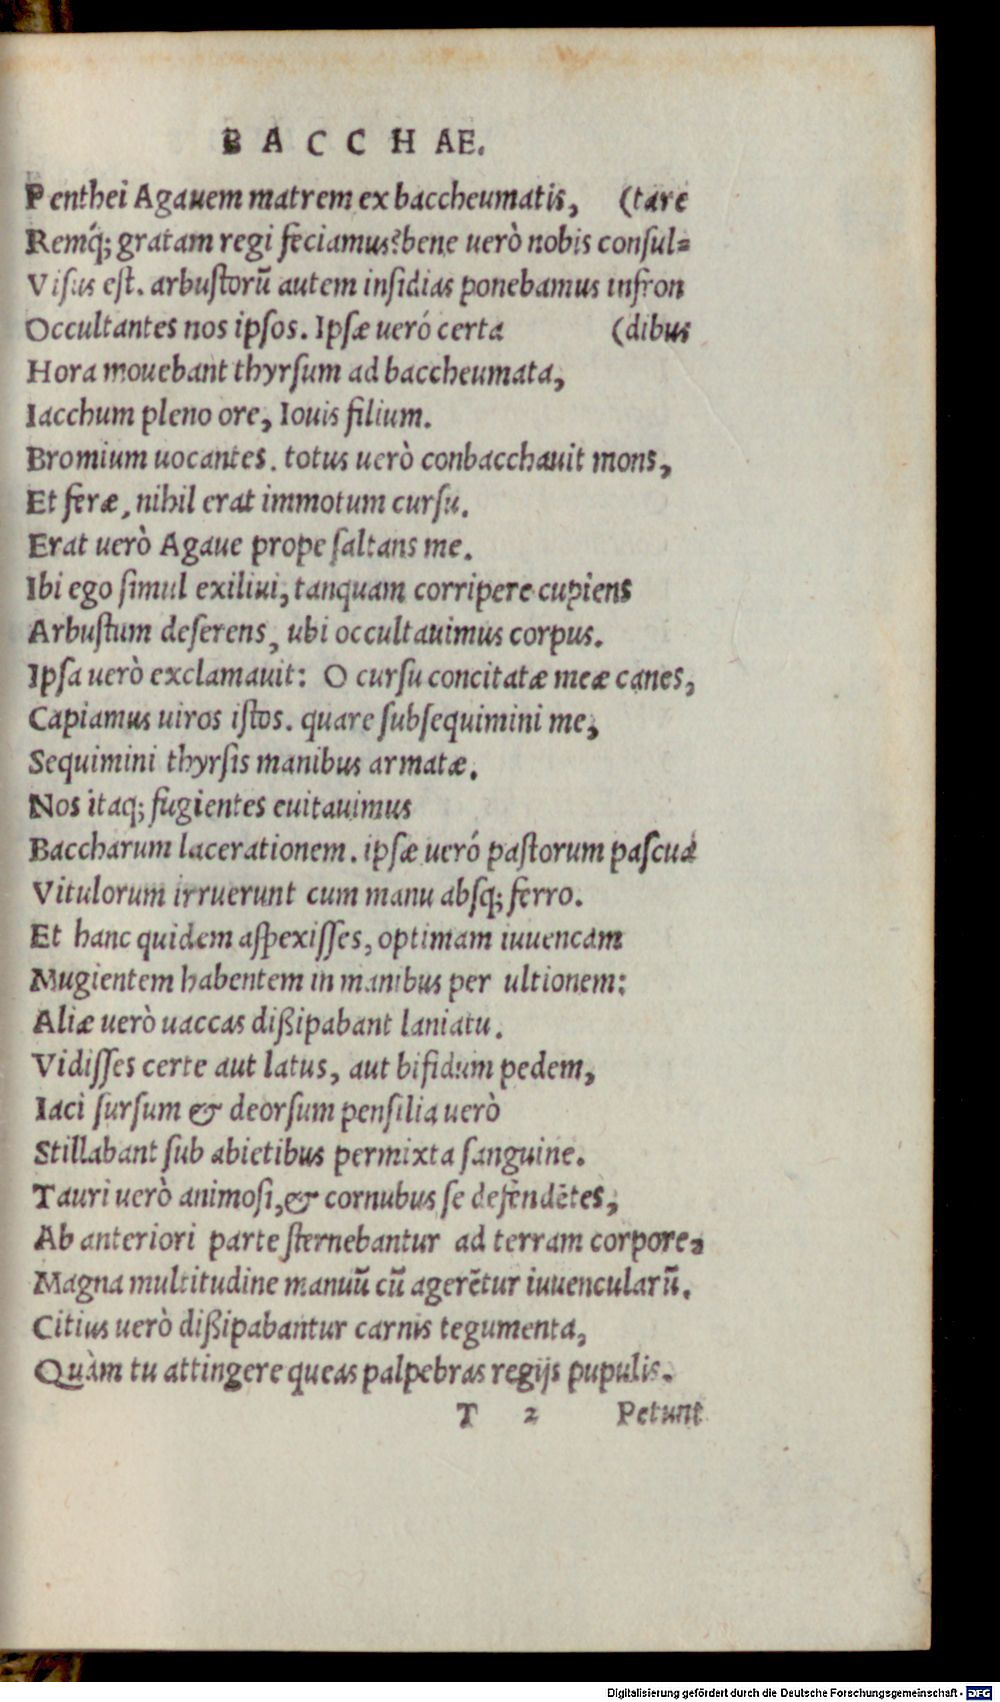 BACCHAE.
Penthei Agauem matrem ex baccheumatis, (tare
Remq́; gratam regi feciamus? bene uerò nobis consul=
Visus est. arbustorũ autem insidias ponebamus infron
Occultantes nos ipsos. Ipsæ ueró certa (dibus
Hora mouebant thyrsum ad baccheumata,
Iacchum pleno ore, Iouis filium.
Bromium uocantes. totus uerò conbacchauit mons,
Et feræ, nihil erat immotum cursu.
Erat uerò Agaue prope saltans me.
Ibi ego simul exiliui, tanquam corripere cupiens
Arbustum deserens, ubi occultauimus corpus.
Ipsa uerò exclamauit: O cursu concitatæ meæ canes,
Capiamus uiros istos. quare subsequimini me,
Sequimini thyrsis manibus armatæ.
Nos itaq; fugientes euitauimus
Baccharum lacerationem. ipsæ ueró pastorum pascua
Vitulorum irruerunt cum manu absq; ferro.
Et hanc quidem aspexisses, optimam iuuencam
Mugientem habentem in manibus per ultionem:
Aliæ uerò uaccas dißipabant laniatu.
Vidisses certe aut latus, aut bifidum pedem,
Iaci sursum & deorsum pensilia uerò
Stillabant sub abietibus permixta sanguine.
Tauri uerò animosi, & cornubus se defendẽtes,
Ab anteriori parte sternebantur ad terram corpore,
Magna multitudine manuũ cũ agerẽtur iuuencularũ.
Citius uerò dißipabantur carnis tegumenta,
Quàm tu attingere queas palpebras regijs pupulis.
T 2 Petunt
Digitalisierung gefördert durch die Deutsche Forschungsgemeinschaft - DFG